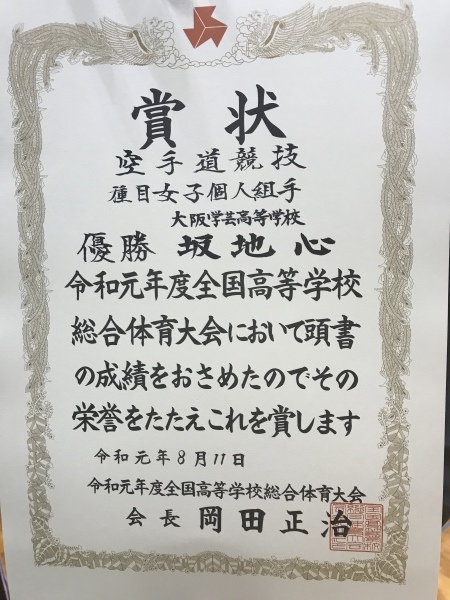 賞状
空手道競技
種目女子個人組手
大阪学芸高等学校
優勝 坂地心
令和元年度全国高等学校
総合体育大会において頭書
の成績をおさめたのでその
栄誉をたたえこれを賞します
令和元年8月11日
令和元年度全国高等学校総合体育大会
会長 岡田正治